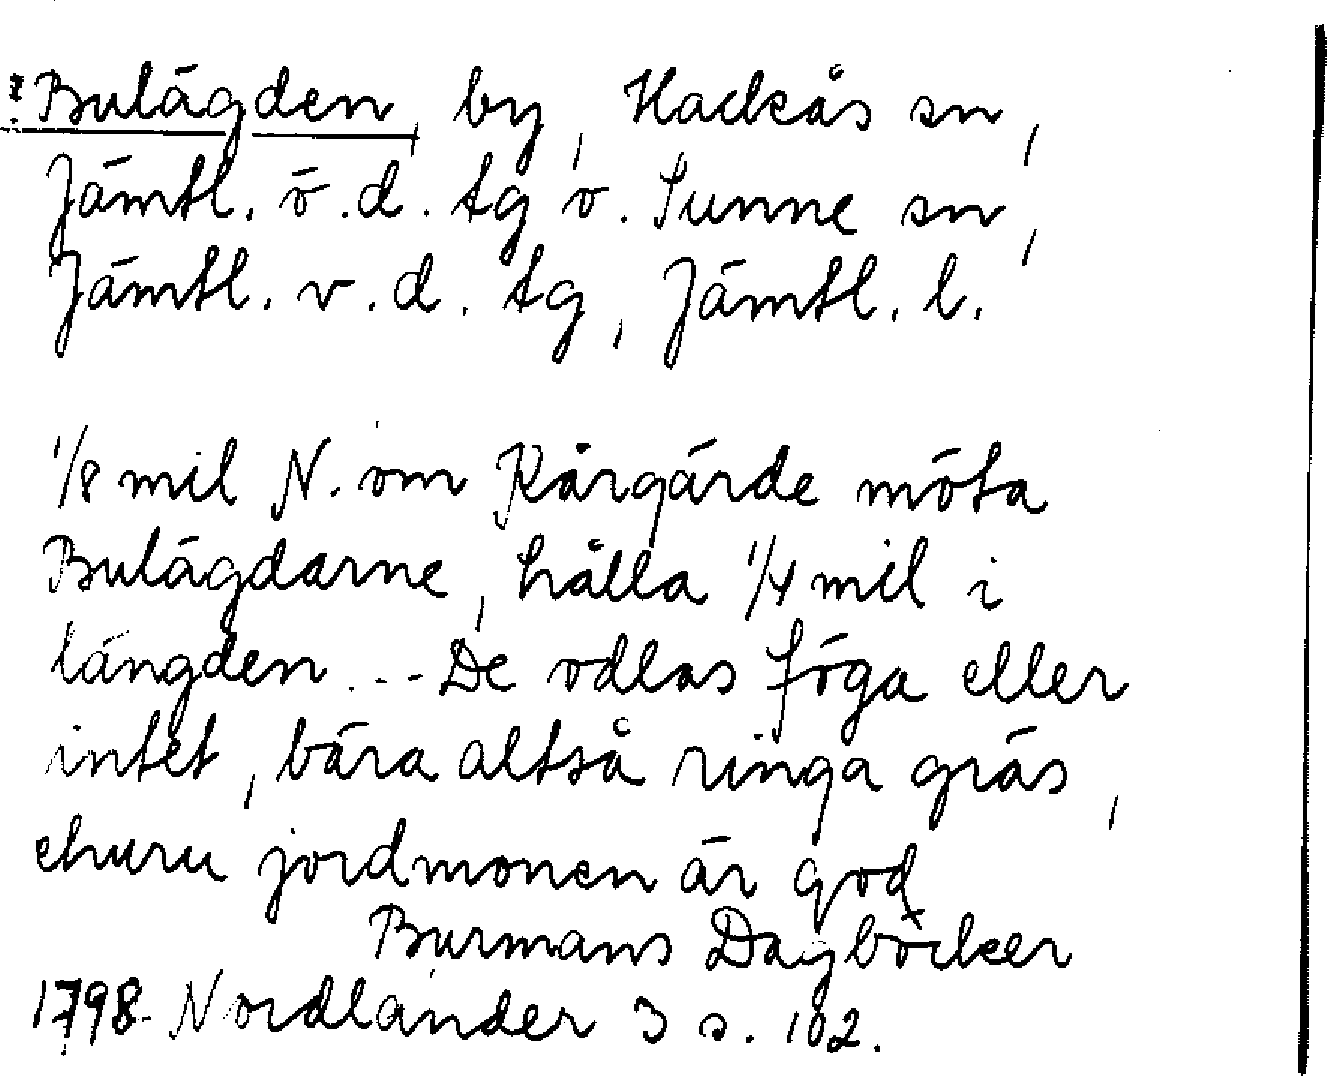 Bulägden, by, Hackås sn,
Jämtl. ö.d. tg o. Sunne sn,
Jämtl. v.d. tg, Jämtl. l.
1/8 mil N. om Kårgärde möta
Bulägdarne, hålla 1/4 mil i
längden... De odlas föga eller
intet, bära altså ringa gräs,
ehuru jordmonen är god
Burmans Dagböcker
1798. Nordlander 3 s. 102.